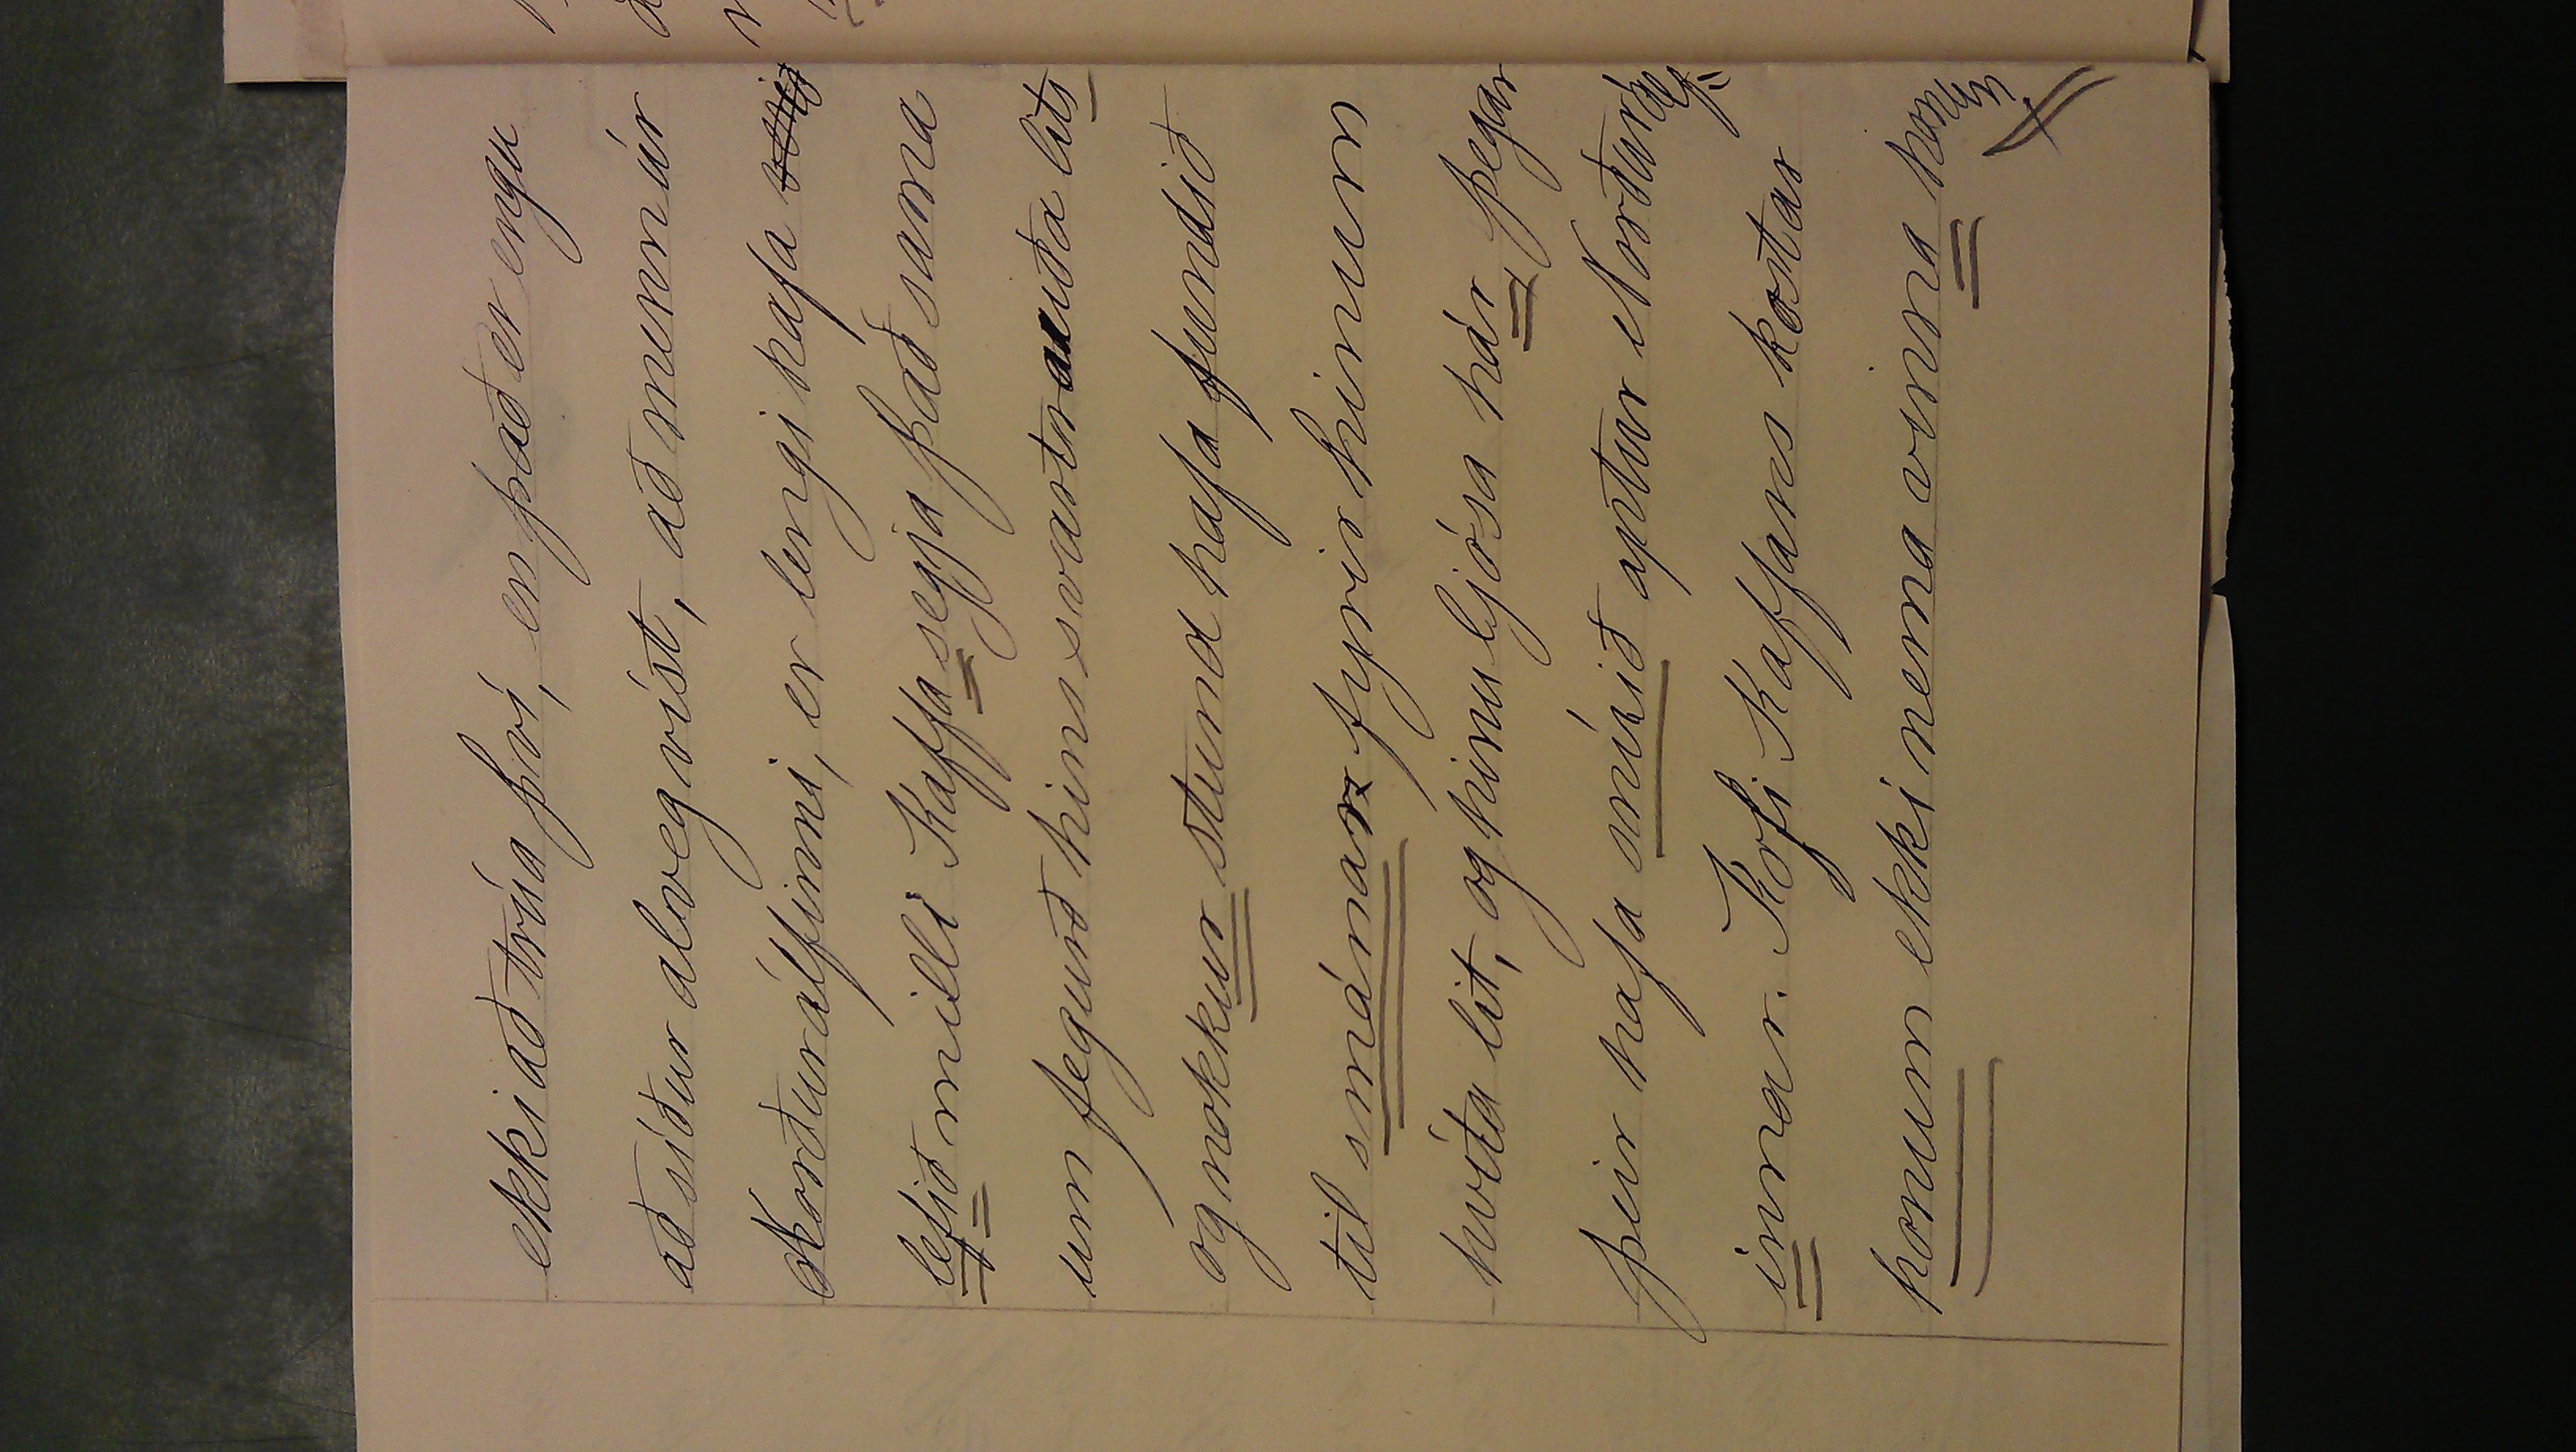 ekki að trúa því, en það er engu
að síður alveg víst, að menn úr
Norðurálfinni, er lengi hafa
lefið milli Kaffa segja það sama
um fegurð hins svartrauða lits
og nokkur stund hafa fundið
til smánar fyrir hinum
hvíta lit, og hinu ljósa hár þegar
þeir hafa snúið aptur Norðurálf-
innar. Korfi Kaffans kostar
honum ekki nema vinna